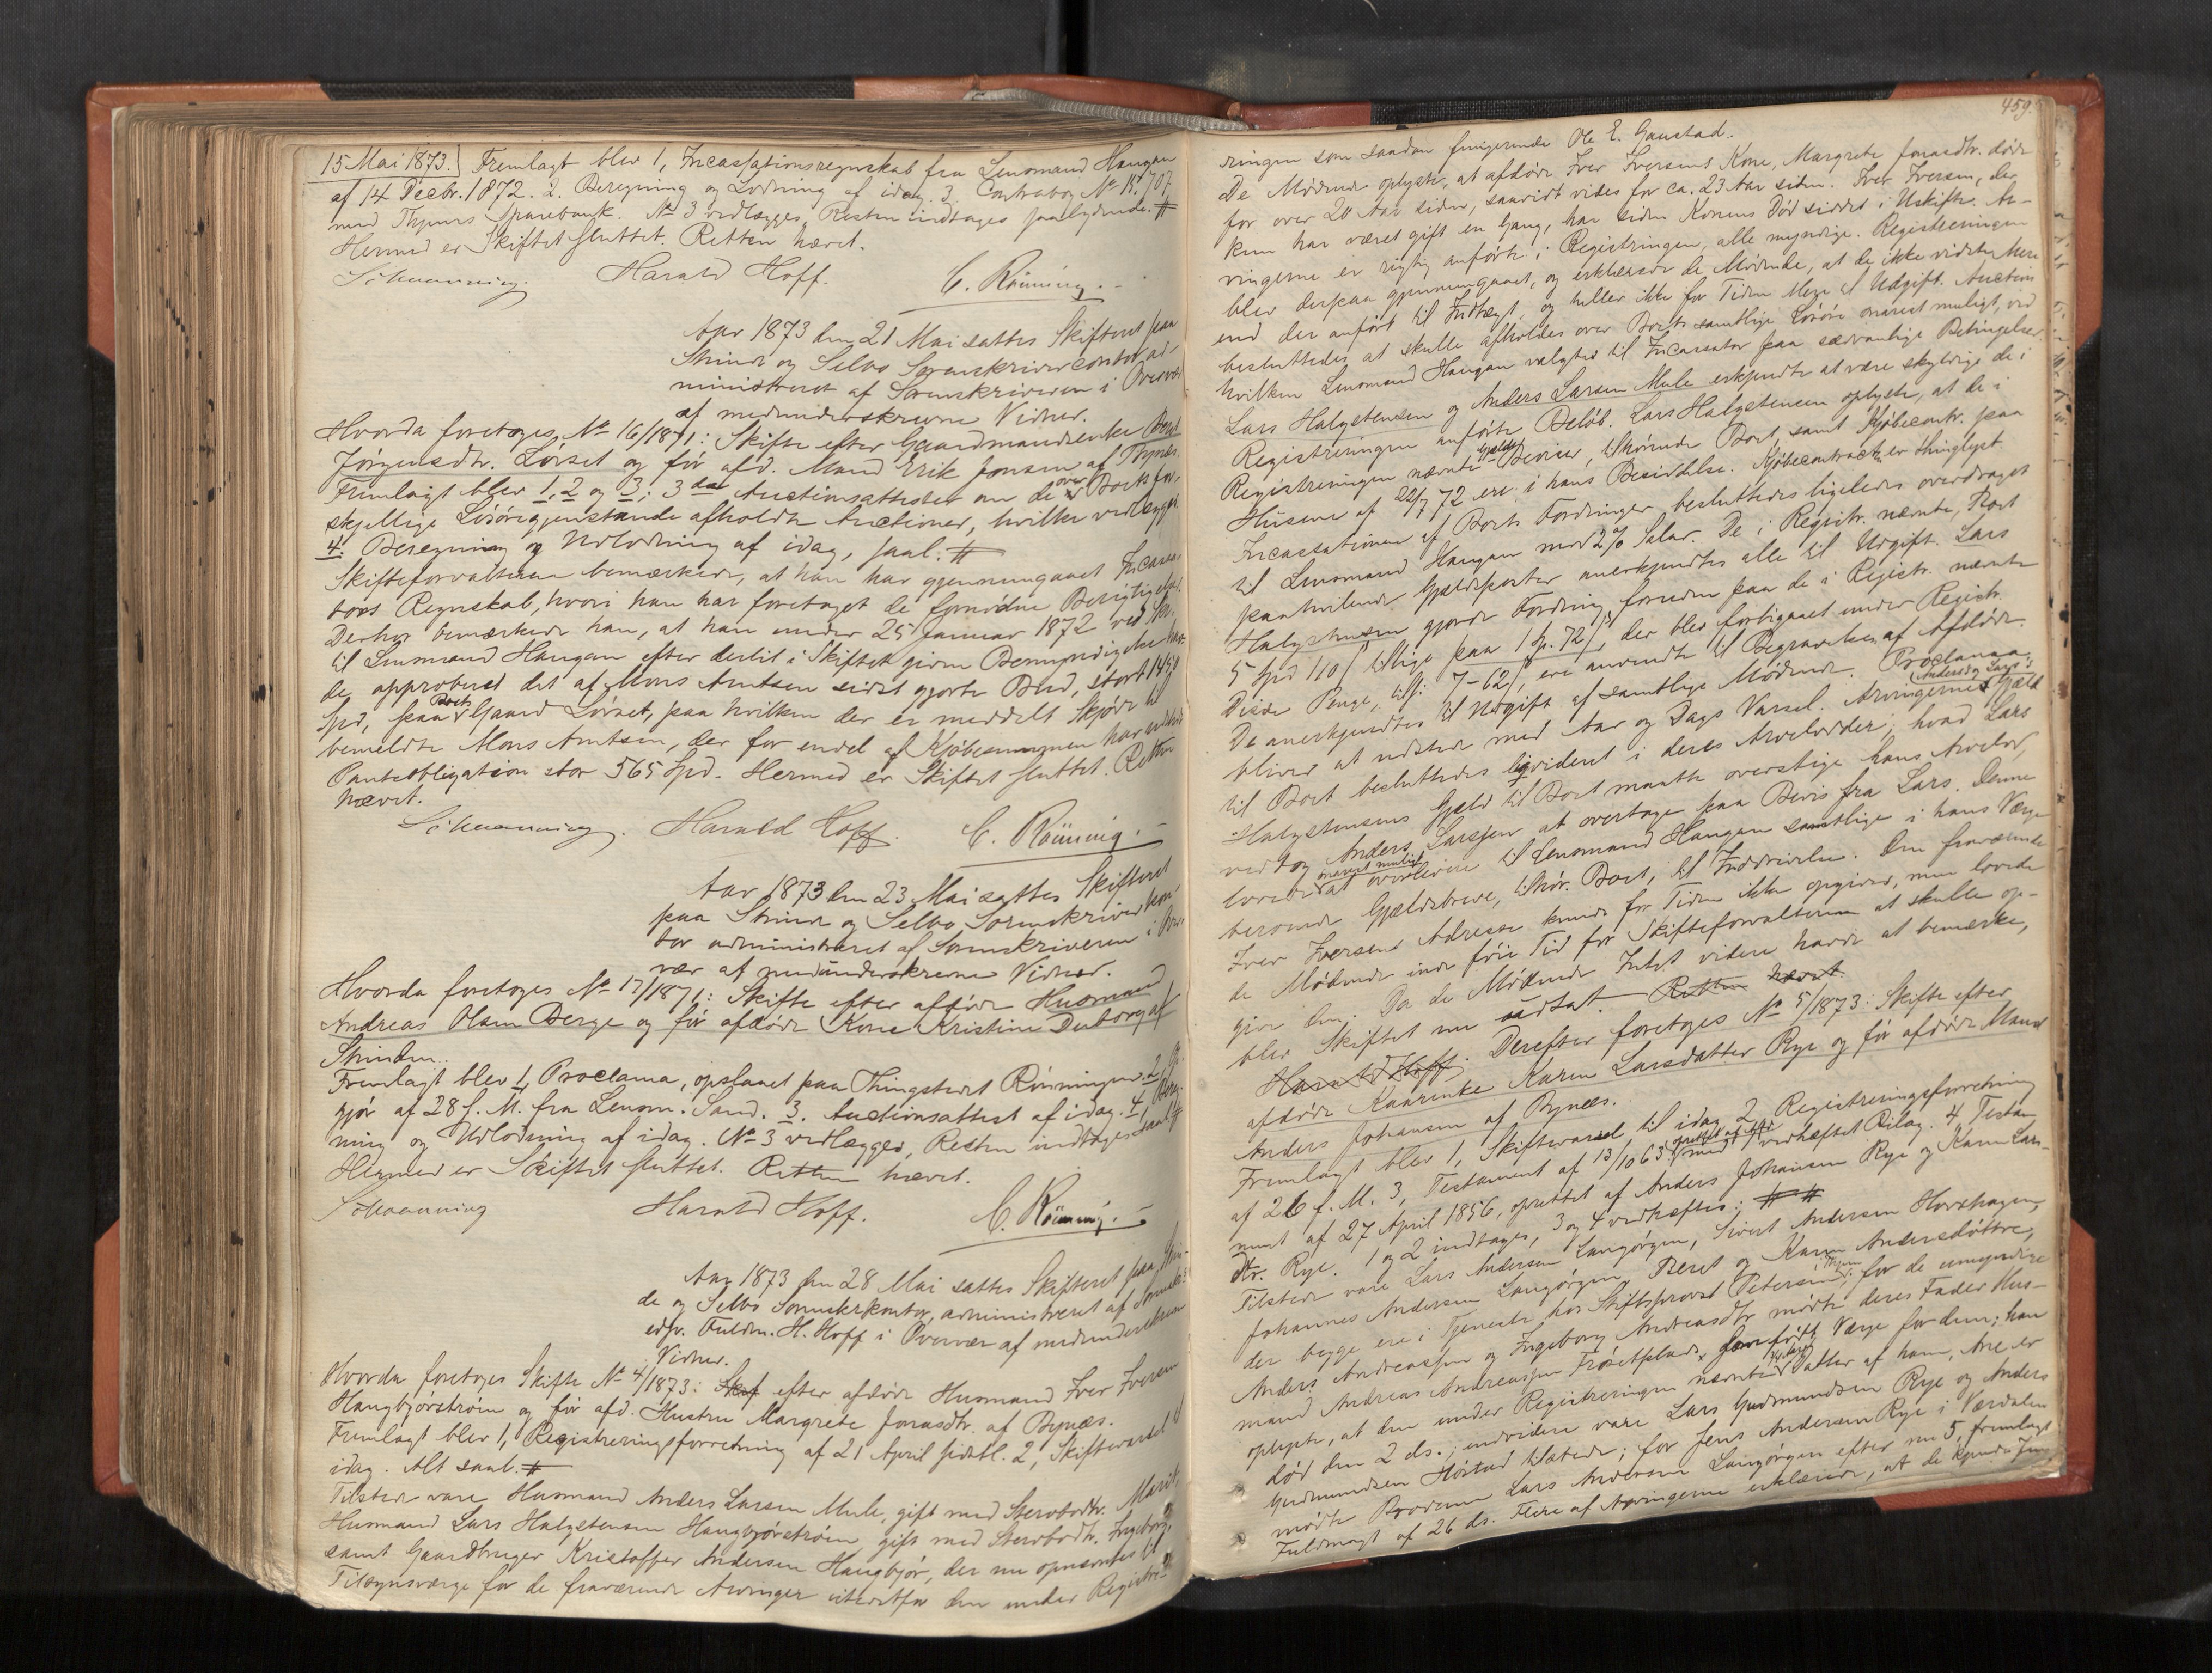 15 Mai 1873. Fremlagt blev 1, Incassationsregnskab fra Lensmand Haugan
af 14 Decbr. 1872. 2. Beregning og Lodning af idag. 3. Contrabog No 15.707
med Thjems Sparebank. No 3 vedlægges, Resten indtages saalydende. #
Hermed er Skiftet sluttet. Retten hævet.
Schwenning. Harald Hoff. C. Rönning.
Aar 1873 den 21 Mai sattes Skifteret paa
Strinde og Selbo Sorenskrivercontor, ad-
ministreret af Sorenskriveren i Overvær
af medunderskrevne Vidner.
Hvorda foretoges No 16/1871: Skifte efter Gaardmandsenke Beret
Jörgensdtr. Lörset og för afd. Mand Erik Jonsen af Bynæs.
Fremlagt blev 1, 2 og 3; 3de Auctionsattester om de over Boets for-
skjellige Lösöregjenstande afholdte Auctioner, hvilke vedlægges
4. Beregning og Udlodning af idag, saal: #
Skifteforvalteren bemærkede, at han har gjennemgaaet Incassa-
tors Regnskab, hvori han har foretaget de fornödne Berigtigelser.
Derhos bemærkede han, at han under 25 Januar 1872 ved Skr.
til Lensmand Haugan efter dertil i Skiftet given Bemyndigelse har
de approberet det af Mons Arntsen sidst gjorte Bud, stort 1450
Spd, paa Boets Gaard Lörset, paa hvilken der er meddelt Skjöde til
bemeldte Mons Arntsen, der for endel af Kjöbesummen har udstedt
Panteobligation stor 565 Spd. Hermed er Skiftet sluttet. Retten
hævet.
Schwenning. Harald Hoff. C. Rönning.
Aar 1873 den 23 Mai sattes Skifteret
paa Strinde og Selbo Sorenskriverkon-
tor administreret af Sorenskriveren i Over-
vær af medunderskrevne Vidner.
Hvorda foretoges No 17/1871: Skifte efter afdöde Husmand
Andreas Olsen Berge og för afdöde Kone Kristine Duborg af
Strinden.
Fremlagt blev 1, Proclama, opslaaet paa Thingstedet Rönningen. 2, Op-
gjör af 28 f. M. fra Lensm. Sand. 3. Auctionsattest af idag. 4, Bereg-
ning og Udlodning af idag. No 3 vedlægges, Resten indtages saal: #
Hermed er Skiftet sluttet. Retten hævet.
Schwenning Harald Hoff. C. Rönning.
Aar 1873 den 28 Mai sattes Skifteret paa Strin-
de og Selbo Sorenskrkontor, administreret af Sorenskr.
edsv. Fuldm. H. Hoff i Overvær af medunderskrevne
Vidner.
Hvorda foretoges Skifte No 4/1873: Skif efter afdöde Husmand Iver Iversen
Haugbjörströen og för afd. Hustru Margrete Jonasdtr. af Bynæs.
Fremlagt blev 1, Registreringsforretning af 21 April sidstl. 2, Skiftevarsel til
idag. Alt saal. #
Tilstede vare Husmand Anders Larsen Mule, gift med Stervbodtr. Marit,
Husmand Lars Halgstensen Haugbjörströen, gift med Stervbodtr. Ingeborg,
samt Gaardbruger Kristoffer Andersen Haugbjör, der nu opnævntes til
Tilsynsværge for de fraværende Arvinger istedetfor den under Registre-
459.
ringen som saadan fungerende Ole E. Gaustad.
De Mödende oplyste, at afdöde Iver Iversens Kone, Margrete Jonasdtr. döde
for over 20 Aar siden, saavidt vides for ca. 23 Aar siden. Iver Iversen, der
kun har været gift en Gang, har siden Konens Död siddet i Uskifte. Ar-
vingerne er rigtig anförte i Registringen, alle myndige. Registreringen
blev derpaa gjennemgaaet, og erklærede de Mödende, at de ikke vidste Mere
end der anfört til Indtægt, og heller ikke for Tiden Mere til Udgift. Auction
besluttedes at skulle afholdes over Boets samtlige Lösöre snarest muligt, ved
hvilken Lensmand Haugan valgtes til Incassator paa sædvanlige Betingelser.
Lars Halgstensen og Anders Larsen Mule erkjendte at være skyldige de i
Registreringen anförte Belöb. Lars Halgstensen oplyste, at de i
Registreringen nævnte Gjelds Beviser, tilhörende Boet, samt Kjöbecontr. paa
Husene af 22/7 72 ere i hans Besiddelse. Kjöbecontracten er thinglyst
Incassationen af Boets Fordringer besluttedes ligeledes overdraget
til Lensmand Haugan mod 2% Salær. De i Registr. nævnte, Boet
paahvilende Gjældsposter anerkjendtes alle til Udgift. Lars
Halgstensen gjorde Fordring, foruden paa de i Registr. nævnte
5 Spd 110 s, tillige paa 1 Sp. 72 s, der blev forbigaaet under Registr.
Disse Penge, tils: 7-62 s, ere anvendte til Begravelsen af Afdöde.
De anerkjendtes til Udgift af samtlige Mödende. Proclama
bliver at udstede med Aar og Dags Varsel. Arvingernes (Anders og Lars's) Gjæld
til Boet besluttedes liqvideret i deres Arvelodder; hvad Lars
Halgstensens Gjæld til Boet maatte overstige hans Arvelod,
vedtog Anders Larssen at overtage paa Bevis fra Lars. Denne
lovede snarest muligt at overlevere til Lensmand Haugan samtlige i hans Værge
beroende Gjældsbreve, tilhör. Boet, til Inddrivelse. Den fraværende
Iver Iversens Adresse kunde for Tiden ikke opgives, men lovede
de Mödende inde föie Tid for Skifteforvalteren at skulle op-
give den. Da de Mödende Intet videre havde at bemærke,
blev Skiftet nu udsat. Retten hævet.
Harald Hoff. Derefter foretoges No 5/1873: Skifte efter
afdöde Kaarenke Karen Larsdatter Rye og för afdöde Mand
Anders Johansen af Bynæs.
Fremlagt blev 1, Skiftevarsel til idag 2, Registreringsforretning
af 26 f. M. 3, Testament af 13/10 63, med vedheftet Bilag. 4 Testa-
ment af 27 April 1856, oprettet af Anders Johansen Rye og Karen Lars-
dtr. Rye. 1 og 2 indtages, 3 og 4 vedheftes: # #
Tilstede vare Lars Andersen Langörgen, Sivert Andersen Horshagen,
Johannes Andersen Langörgen, Beret og Karen Andersdöttre,
der begge ere i Tjeneste hos Stiftsprovst Petersen; for de umyndige
Anders Andreassen og Ingeborg Andreasdtr mödte deres Fader Hus-
mand Andreas Andreassen Frösetplads, som födt Værge for dem; han
oplyste, at den under Registreringen nævnte Datter af ham, Ane er
död den 2 ds.; endvidere vare Lars Gudmundsen Rye og Anders
Gudmundsen Höstad tilstede; for Jens Andersen Rye i Værdalen
mödte Broderen Lars Andersen Langörgen efter nu 5, fremlagt
Fuldmagt af 26 ds. Flere af Arvingerne erklærede, at de